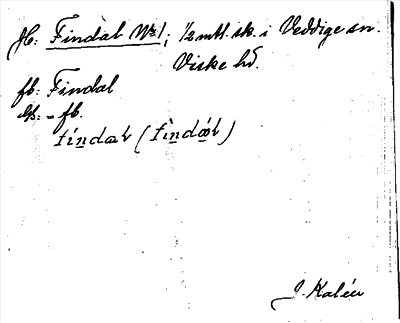 fb: Findal No 1, 1/2 mtl. sk. i Veddige sn.
Viske hd.
fb: Findal
Us: = fb.
findaɫ (findáɫ)
J. Kalén